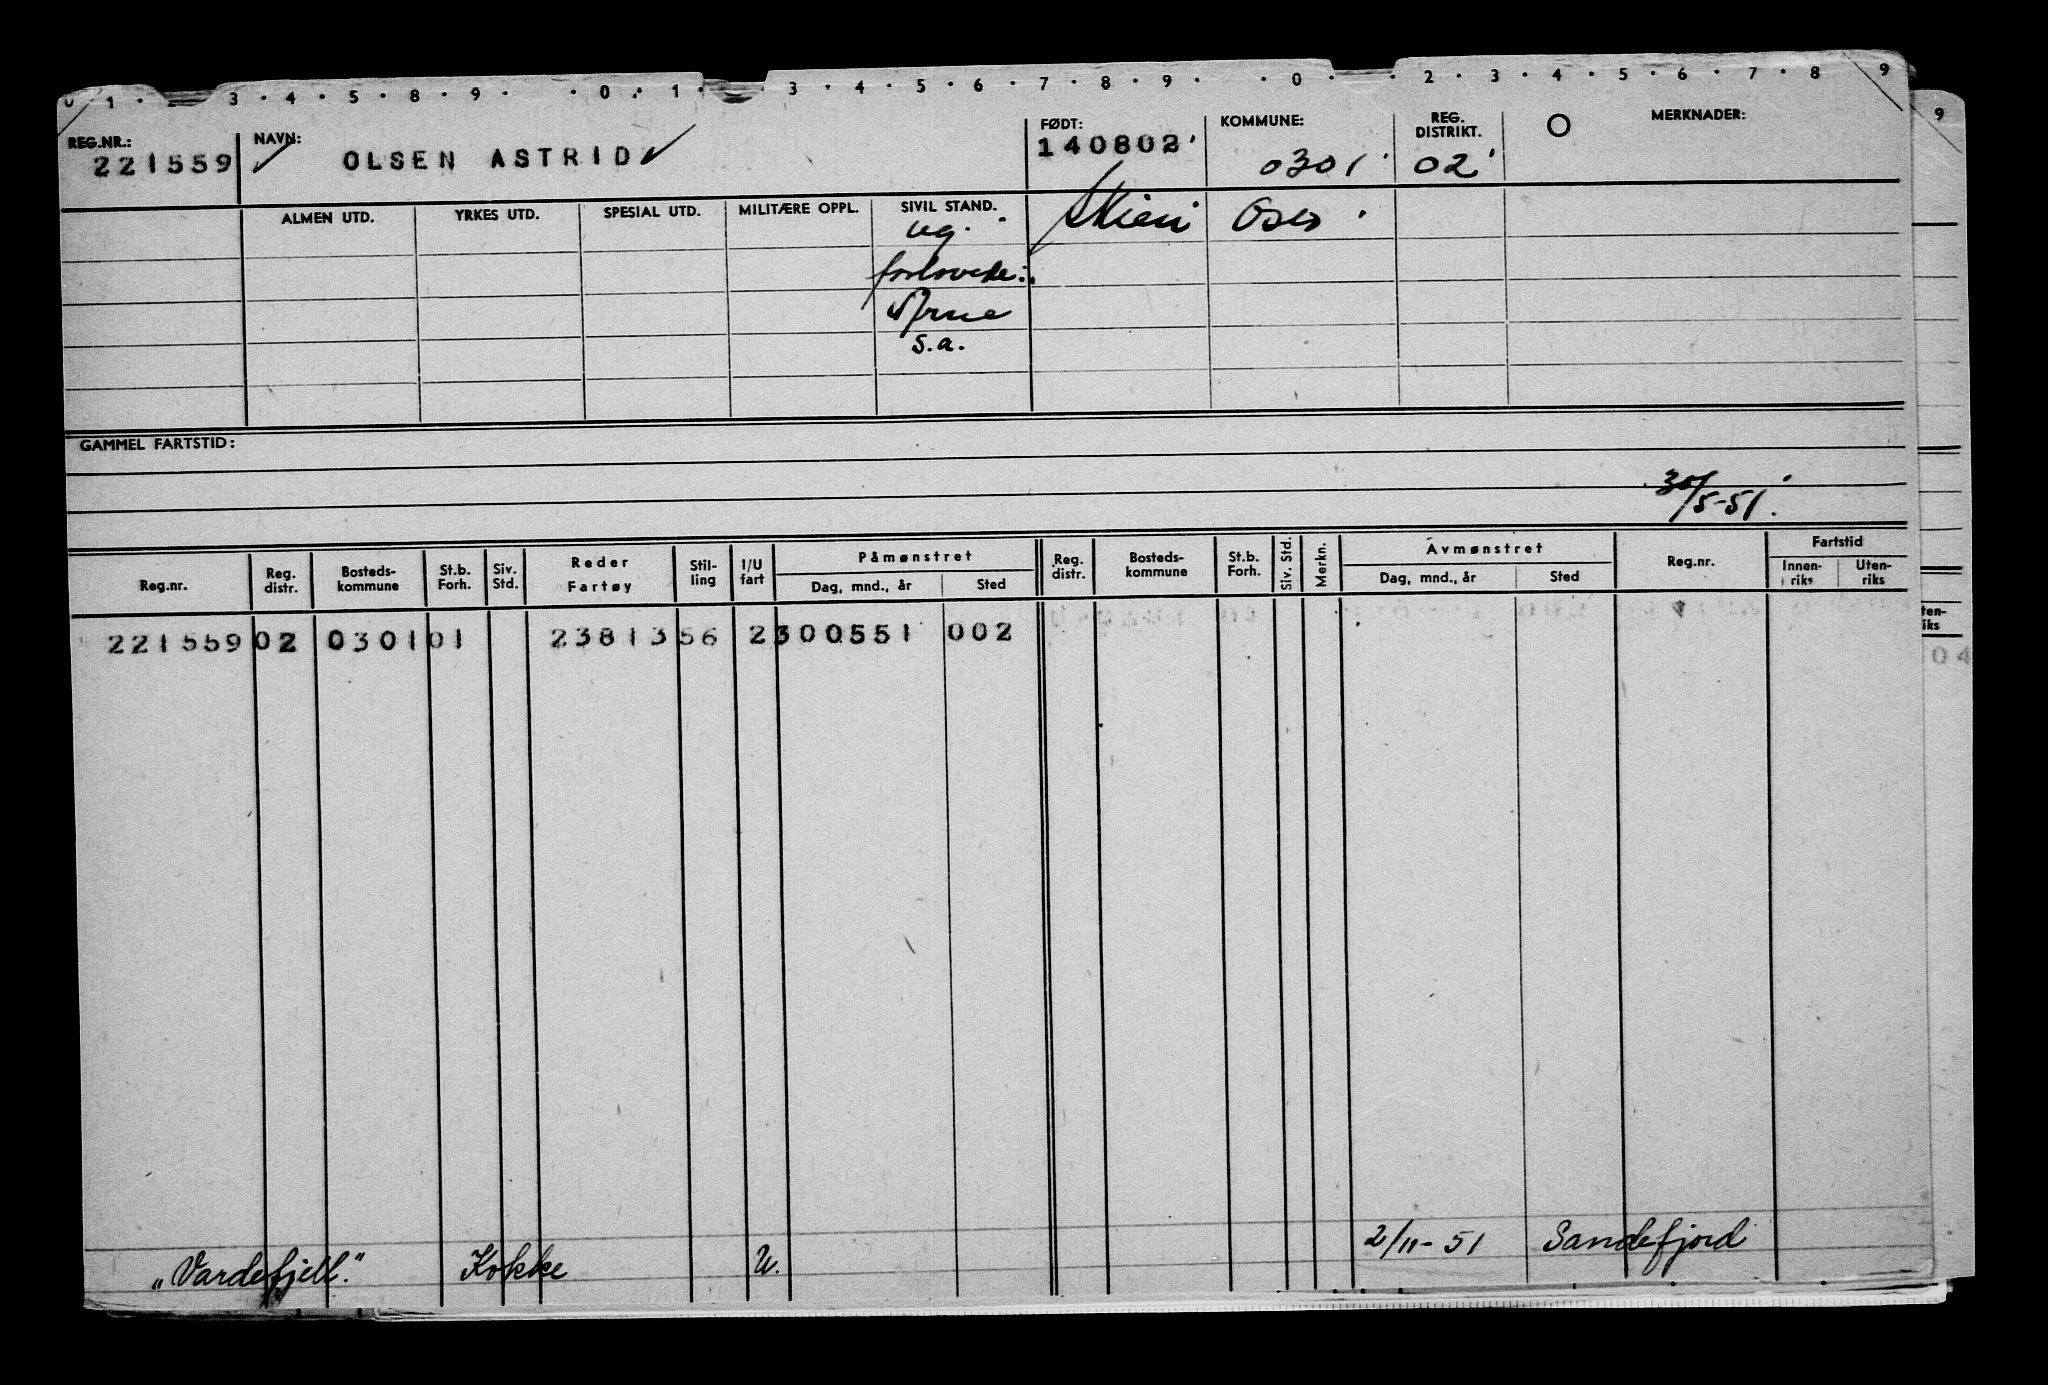 0 1 · 3 · 4 · 5 · 8 · 9 · · 0 · 1 · 3 · 4 · 5 · 6 · 7 · 8 · 9 · · 0 · · 2 · 3 · 4 · 5 · 6 · 7 · 8 9
9
REG.NR.: NAVN: FØDT: KOMMUNE: REG. DISTRIKT. O MERKNADER:
221559 OLSEN ASTRID 140802 0301 02
ALMEN UTD. YRKES UTD. SPESIAL UTD. MILITÆRE OPPL. SIVIL STAND. Oslo
ug.
forlovede:
Arne
s.a.
GAMMEL FARTSTID:
30/5-51.
Reg.nr. Reg. distr. Bosteds-kommune St.b. Forh. Siv. Std. Reder Fartøy Stil-ling I/U fart Påmønstret Dag, mnd., år Sted Reg. distr. Bosteds-kommune St.b. Forh. Siv. Std. Merkn. Avmønstret Dag, mnd., år Sted Reg.nr. Fartstid Innen-riks Uten-riks
ten-
iks
221559 02 0301 01 23813 56 2 300551 002
04
2/11-51 Sandefjord
„Vardefjell." Kokke U.